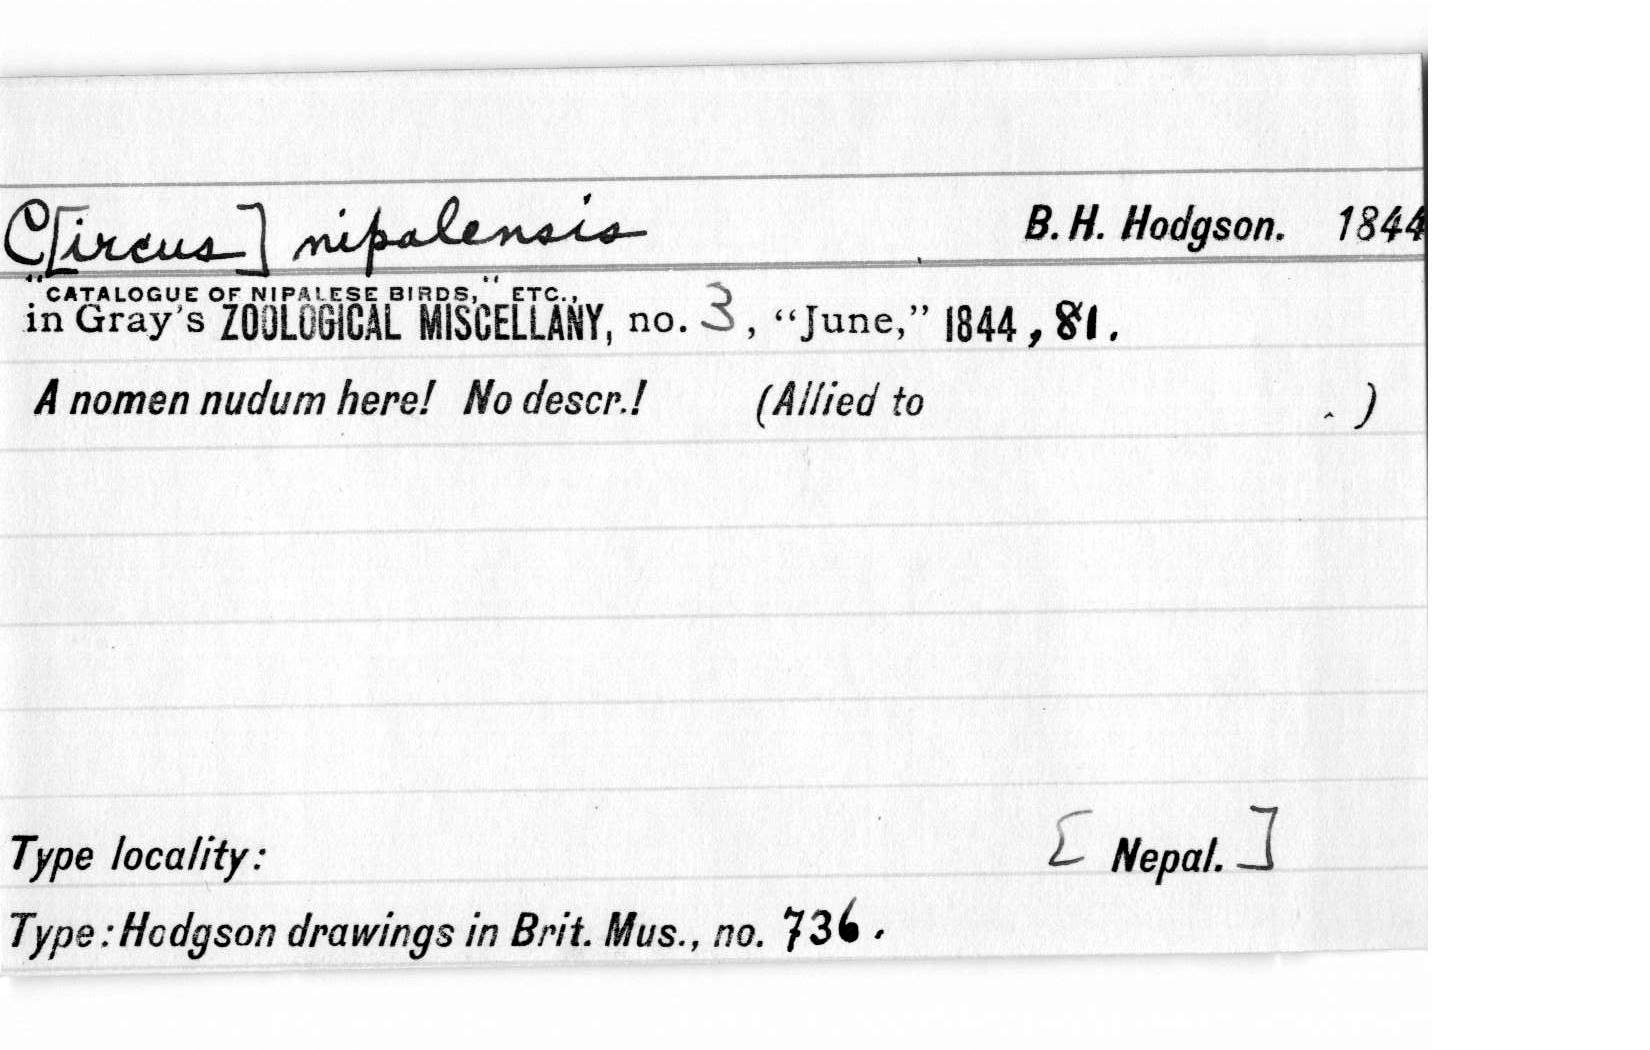 C[ircus] nipalensis B. H. Hodgson. 1844
"CATALOGUE OF NIPALESE BIRDS," ETC.,
in Gray's ZOOLOGICAL MISCELLANY, no. 3, "June," 1844, 81.
A nomen nudum here! No descr.! (Allied to . )
Type locality: [Nepal.]
Type: Hodgson drawings in Brit. Mus., no. 736.